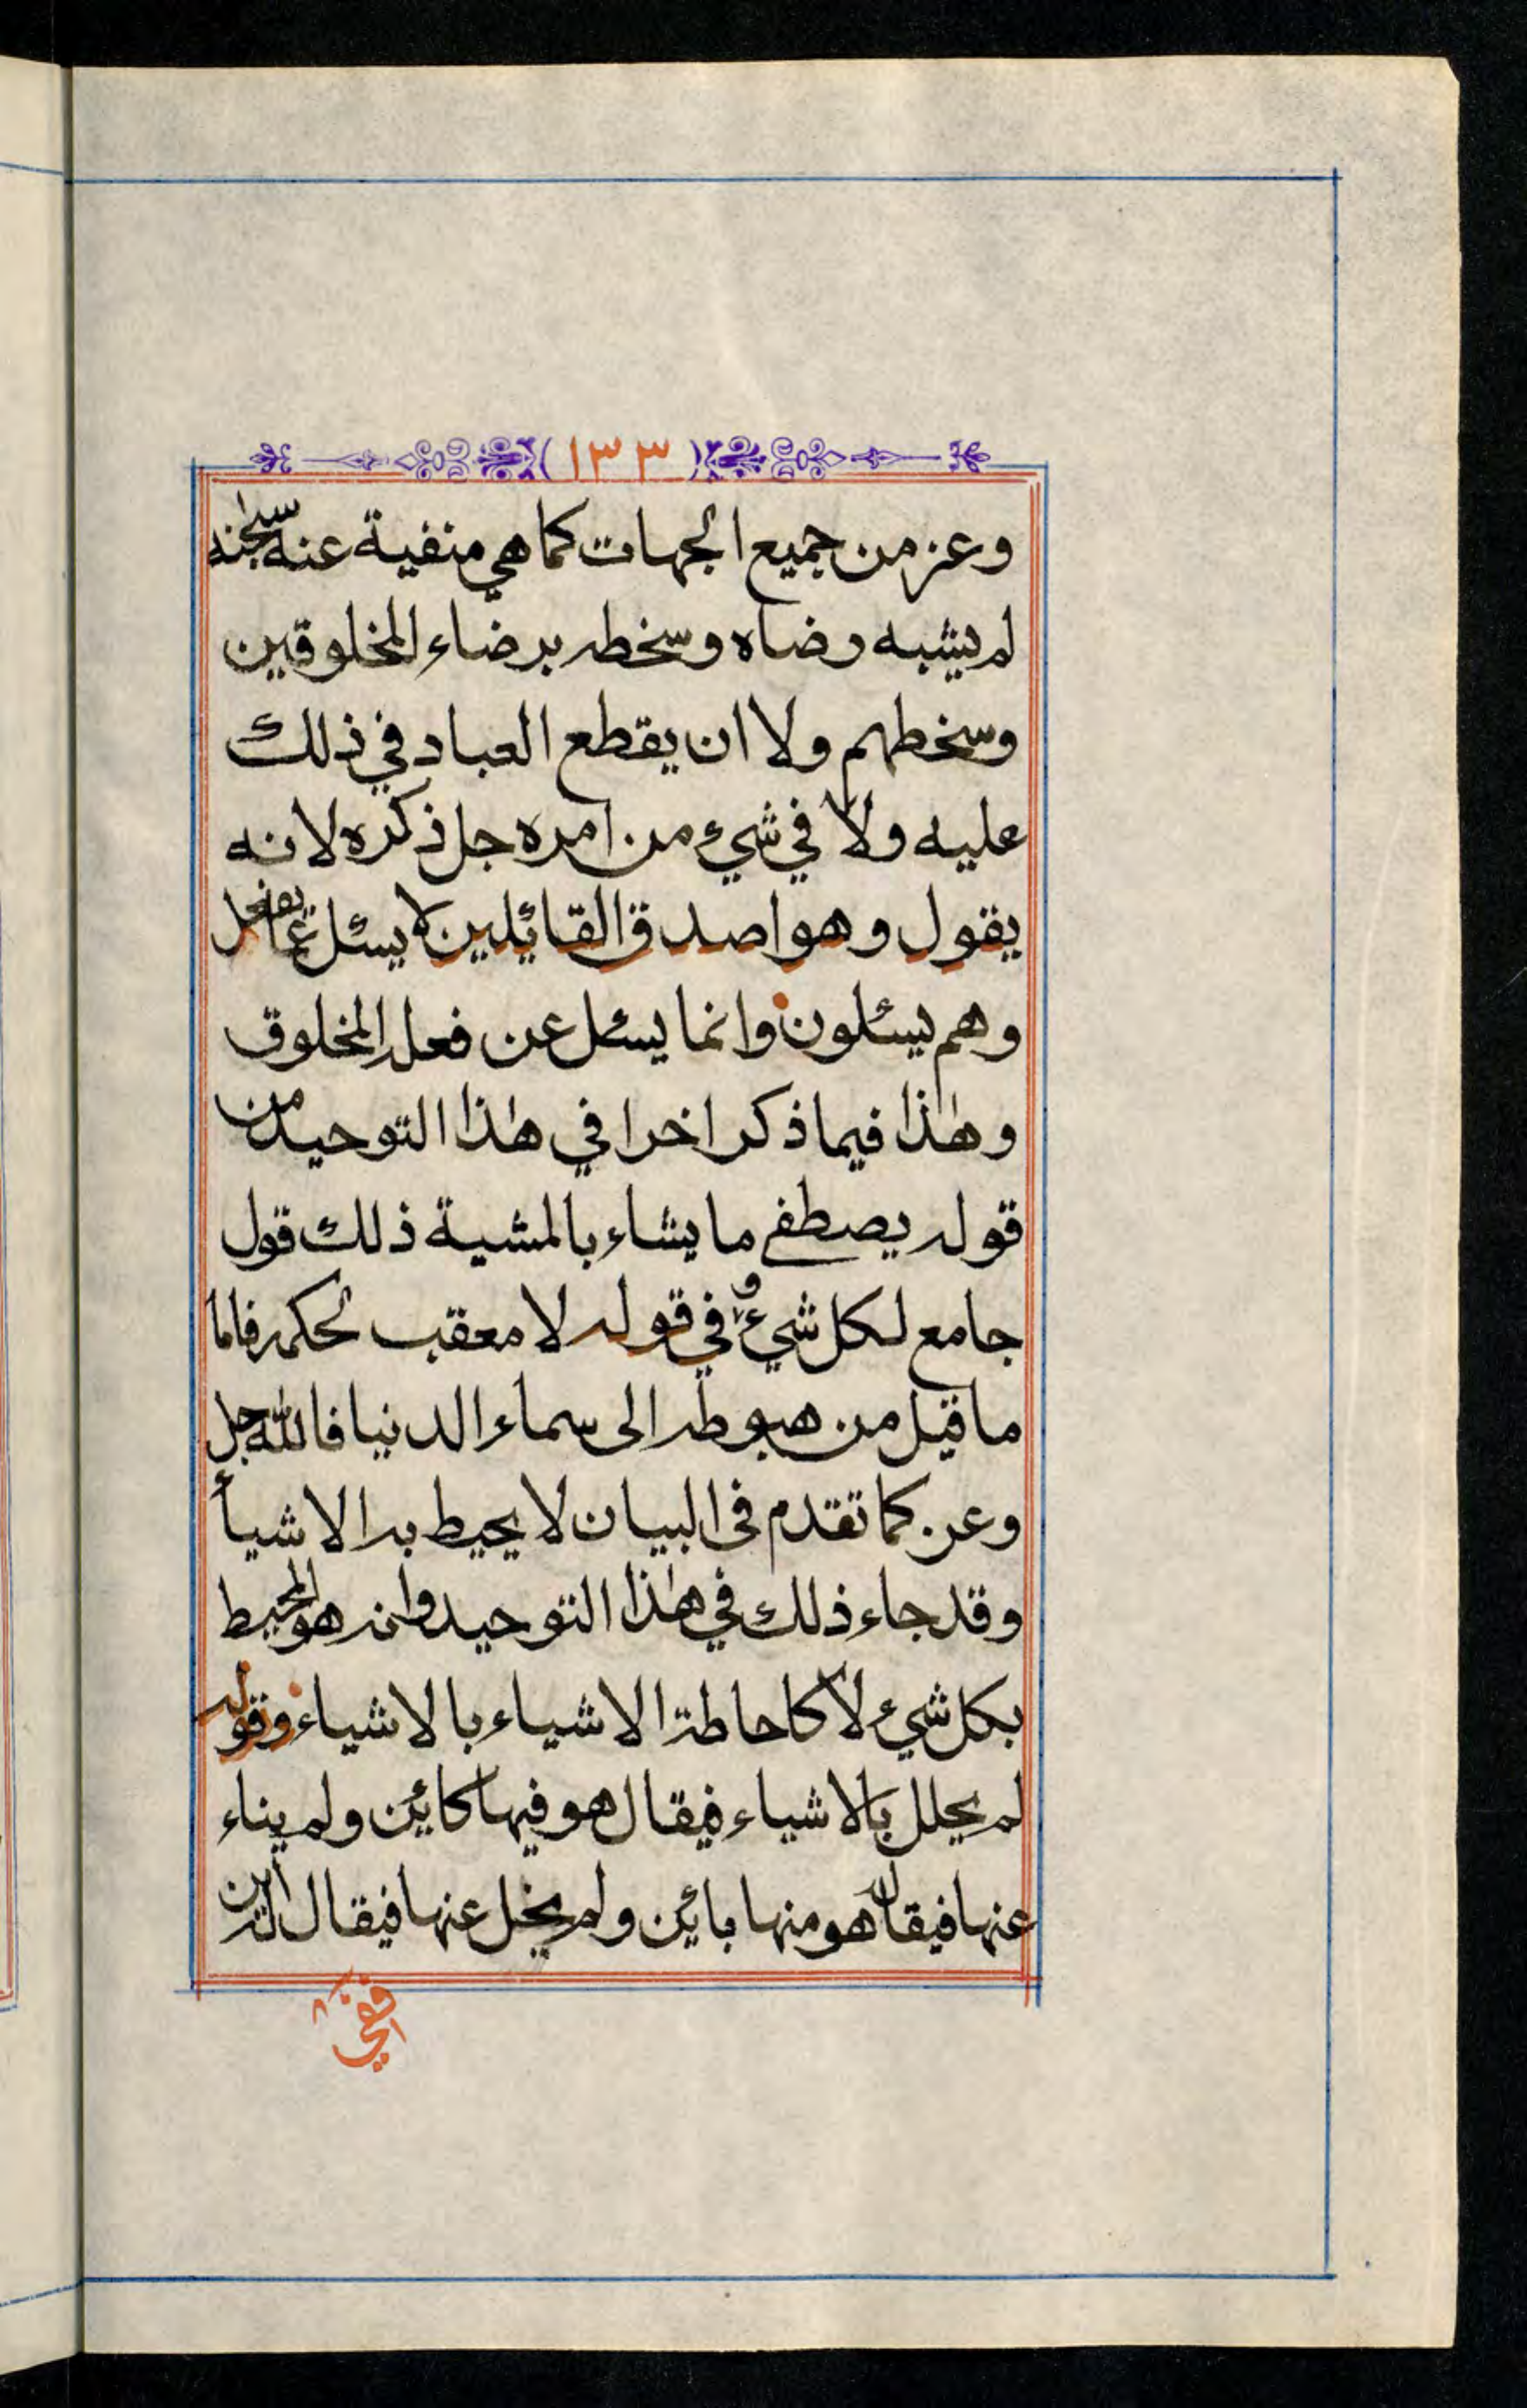 (١٣٣)
وعز من جميع الجهات كما هي منفية عنه سبحانه
لم يشبه رضاه وسخطه برضاء المخلوقين
وسخطهم ولا ان يقطع العباد في ذلك
عليه ولا في شيء من امره جل ذكره لانه
يقول وهو اصدق القائلين لا يسئل عما يفعل
وهم يسئلون وانما يسئل عن فعله المخلوق
وهٰذا فيما ذكر اخرا في هٰذا التوحيد من
قوله يصطفي ما يشاء بالمشية ذلك قول
جامع لكل شيء وفي قوله لا معقب لحكمه فاما
ما قيل من هبوطه الى سماء الدنيا فالله جل
وعز كما تقدم في البيان لا يحيط به الاشيأ
وقد جاء ذلك في هٰذا التوحيد وانه هو المحيط
بكل شيء لا كاحاطة الاشياء بالاشياء وقوله
لم يحلل بالاشياء فيقال هو فيها كائن ولم يناء
عنها فيقال هو منها بائن ولم يخل عنها فيقال له اين
ففي